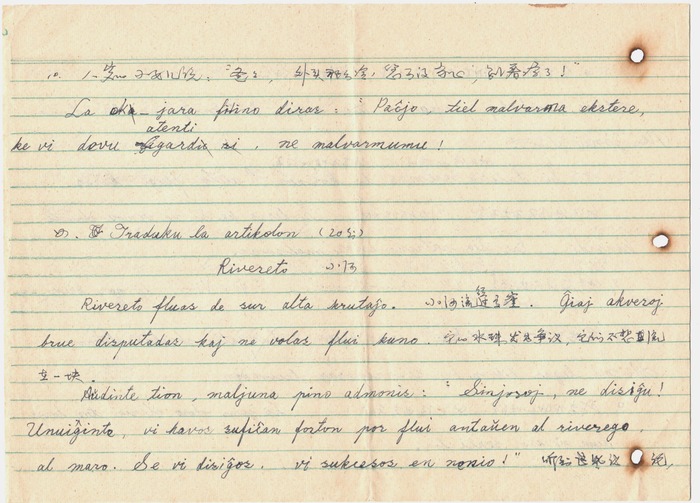 10. 八岁的女儿说：“爸爸，外头
La oka-jara filino diras : "Paĉjo, tiel malvarma ekstere,
atenti
ke vi devu si, ne malvarmumu !
Traduku la artikolon (20分)
Rivereto 小河
Rivereto fluas de sur alta krutaĵo. 小河流 . Ĝiaj akveroj
brue disputadas kaj ne volas flui kune. 它的水珠发生争议，它们不想直流
在一块.
Aŭdinte tion, maljuna pino admonis : "Sinjoroj, ne disiĝu !
Unuiĝinte, vi havos sufiĉan forton por flui antaŭen al riverego,
al maro. Se vi disiĝos, vi sukcesos en nenio !" 听到